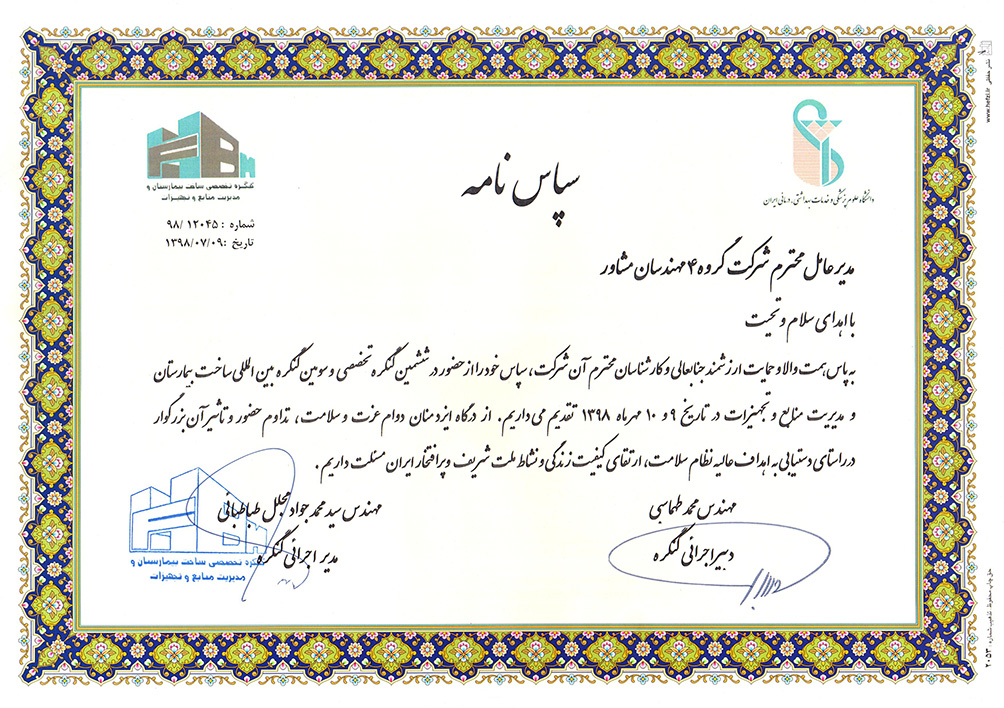 سپاس نامه
کنگره تخصصی ساخت بیمارستان و
مدیریت منابع و تجهیزات
شماره : ۱۲۰۴۵ /۹۸
تاریخ :۱۳۹۸/۰۷/۰۹
دانشگاه علوم پزشکی و خدمات بهداشتی، درمانی ایران
مدیرعامل محترم شرکت گروه ۴ مهندسان مشاور
با اهدای سلام و تحیت
به پاس همت والا و حمایت ارزشمند جنابعالی و کارشناسان محترم آن شرکت، سپاس خود را از حضور در ششمین کنگره تخصصی و سومین کنگره بین المللی ساخت بیمارستان
و مدیریت منابع و تجهیزات در تاریخ ۹ و ۱۰ مهرماه ۱۳۹۸ تقدیم می داریم. از درگاه ایزد منان دوام عزت و سلامت، تداوم حضور و تاثیر آن بزرگوار
در راستای دستیابی به اهداف عالیه نظام سلامت، ارتقای کیفیت زندگی و نشاط ملت شریف و پرافتخار ایران مسئلت داریم.
مهندس محمد طهماسبی
دبیر اجرائی کنگره
مهندس سید محمد جواد مجلل طباطبائی
مدیر اجرائی کنگره
کنگره تخصصی ساخت بیمارستان و
مدیریت منابع و تجهیزات
نشر حفظی www.hefzi.ir
حق چاپ محفوظ. تذهیب شماره ۲۰۵۳